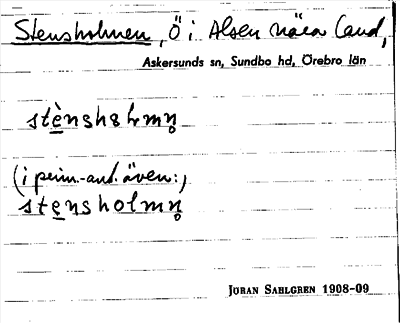 Stensholmen, Ö i Alsen nära land,
Askersunds sn, Sundbo hd, Örebro län
stènshɘlmn̥
(i prim.-ant. även:)
stensholmn̥
JÖRAN SAHLGREN 1908-09